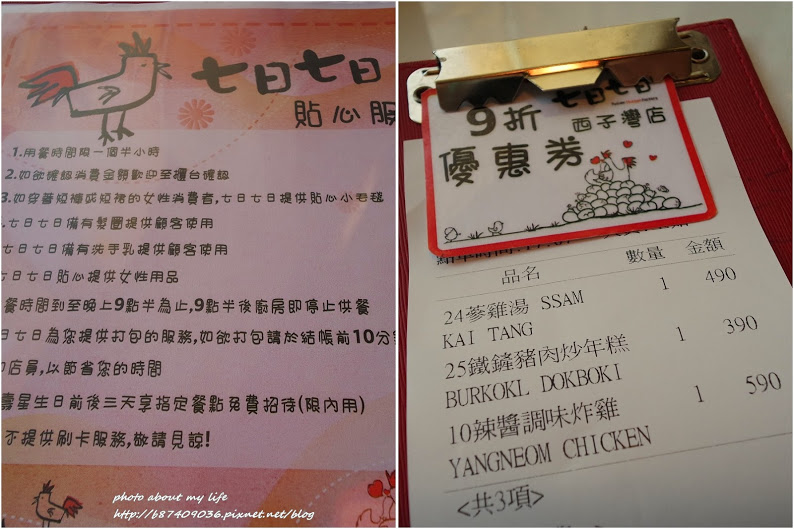 七日七日
貼心服
1.用餐時間限一個半小時
2.如欲確認消費金額歡迎至櫃台確認
3.如穿著短褲或短裙的女性消費者,七日七日提供貼心小毛毯
七日七日備有髮圈提供顧客使用
七日七日備有洗手乳提供顧客使用
七日七日貼心提供女性用品
餐時間到至晚上9點半為止,9點半後廚房即停止供餐
日七日為您提供打包的服務,如欲打包請於結帳前10分
店員,以節省您的時間
壽星生日前後三天享指定餐點免費招待(限內用)
不提供刷卡服務,敬請見諒!
photo about my life
http://b87409036.pixnet.net/blog
七日七日
9折 西子灣店
優惠券
品名 數量 金額
24蔘雞湯 SSAM 1 490
KAI TANG
25鐵鏟豬肉炒年糕 1 390
BURKOKL DOKBOKI
10辣醬調味炸雞 1 590
YANGNEOM CHICKEN
<共3項>